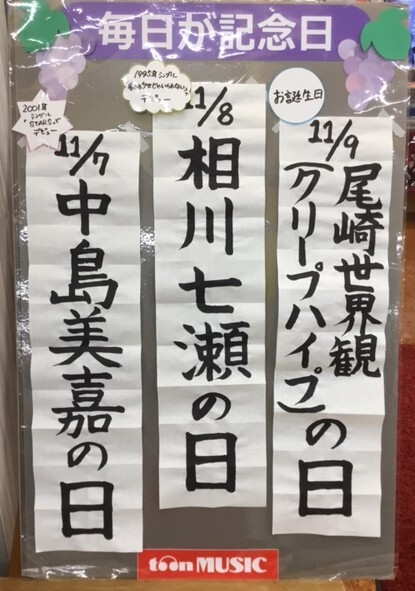 毎日が記念日
お誕生日
11/9
尾崎世界観
(クリープハイプ)の日
1995年シングル
デビュー
11/8
相川七瀬の日
2001年
シングル
「STARS」で
デビュー
11/7
中島美嘉の日
toon MUSIC